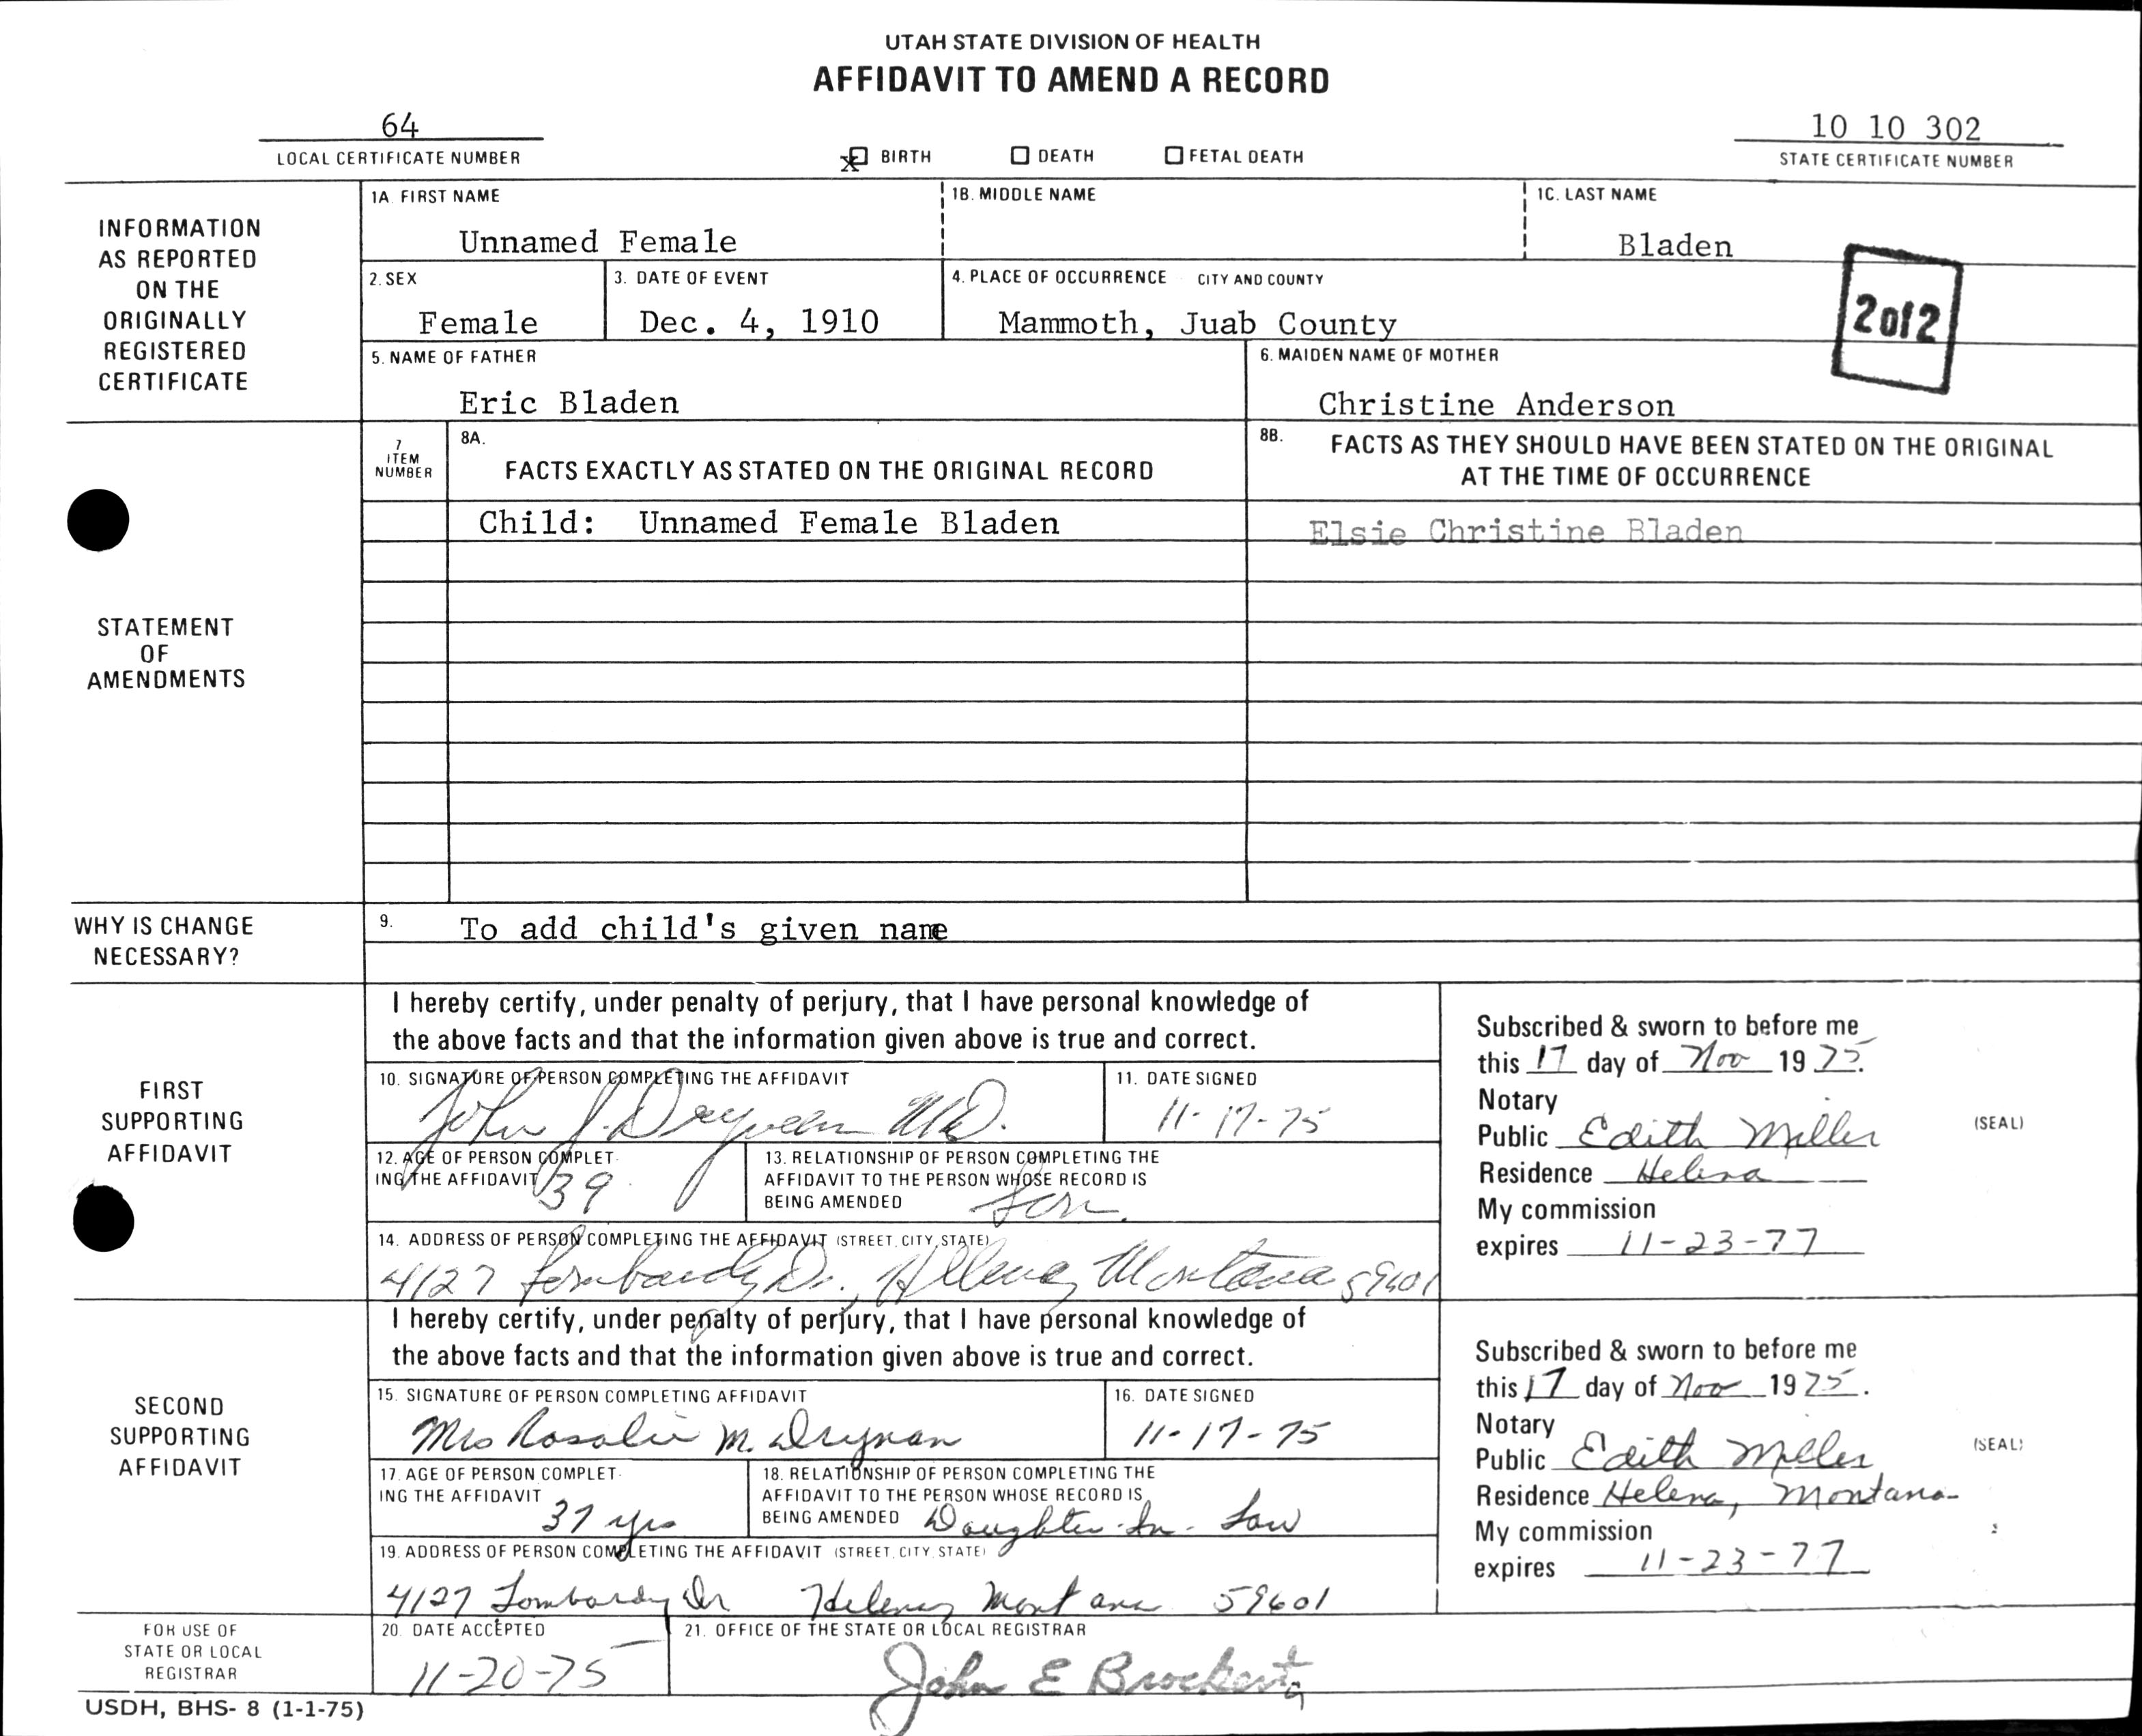 UTAH STATE DIVISION OF HEALTH
AFFIDAVIT TO AMEND A RECORD
64
LOCAL CERTIFICATE NUMBER
x BIRTH DEATH FETAL DEATH
10 10 302
STATE CERTIFICATE NUMBER
INFORMATION
AS REPORTED
ON THE
ORIGINALLY
REGISTERED
CERTIFICATE
1A. FIRST NAME
Unnamed Female
1B. MIDDLE NAME
1C. LAST NAME
Bladen
2. SEX
Female
3. DATE OF EVENT
Dec. 4, 1910
4. PLACE OF OCCURRENCE CITY AND COUNTY
Mammoth, Juab County
2 of 2
5. NAME OF FATHER
Eric Bladen
6. MAIDEN NAME OF MOTHER
Christine Anderson
STATEMENT
OF
AMENDMENTS
7
ITEM
NUMBER
8A.
FACTS EXACTLY AS STATED ON THE ORIGINAL RECORD
8B. FACTS AS THEY SHOULD HAVE BEEN STATED ON THE ORIGINAL
AT THE TIME OF OCCURRENCE
Child: Unnamed Female Bladen
Elsie Christine Bladen
WHY IS CHANGE
NECESSARY?
9. To add child's given name
FIRST
SUPPORTING
AFFIDAVIT
I hereby certify, under penalty of perjury, that I have personal knowledge of
the above facts and that the information given above is true and correct.
10. SIGNATURE OF PERSON COMPLETING THE AFFIDAVIT
John J. Drynan M.D.
11. DATE SIGNED
11-17-75
12. AGE OF PERSON COMPLET-
ING THE AFFIDAVIT 39
13. RELATIONSHIP OF PERSON COMPLETING THE
AFFIDAVIT TO THE PERSON WHOSE RECORD IS
BEING AMENDED Son.
14. ADDRESS OF PERSON COMPLETING THE AFFIDAVIT (STREET, CITY, STATE)
4127 Lombardy Dr., Helena, Montana 59601
Subscribed & sworn to before me
this 17 day of Nov 1975.
Notary
Public Edith Miller (SEAL)
Residence Helena
My commission
expires 11-23-77
SECOND
SUPPORTING
AFFIDAVIT
I hereby certify, under penalty of perjury, that I have personal knowledge of
the above facts and that the information given above is true and correct.
15. SIGNATURE OF PERSON COMPLETING AFFIDAVIT
Mrs Rosalie M. Drynan
16. DATE SIGNED
11-17-75
17. AGE OF PERSON COMPLET-
ING THE AFFIDAVIT
37 yrs
18. RELATIONSHIP OF PERSON COMPLETING THE
AFFIDAVIT TO THE PERSON WHOSE RECORD IS
BEING AMENDED Daughter-In-Law
19. ADDRESS OF PERSON COMPLETING THE AFFIDAVIT (STREET, CITY, STATE)
4127 Lombardy Dr Helena, Montana 59601
Subscribed & sworn to before me
this 17 day of Nov 1975.
Notary
Public Edith Miller (SEAL)
Residence Helena, Montana
My commission
expires 11-23-77
FOR USE OF
STATE OR LOCAL
REGISTRAR
20. DATE ACCEPTED
11-20-75
21. OFFICE OF THE STATE OR LOCAL REGISTRAR
John E Brockert
USDH, BHS- 8 (1-1-75)